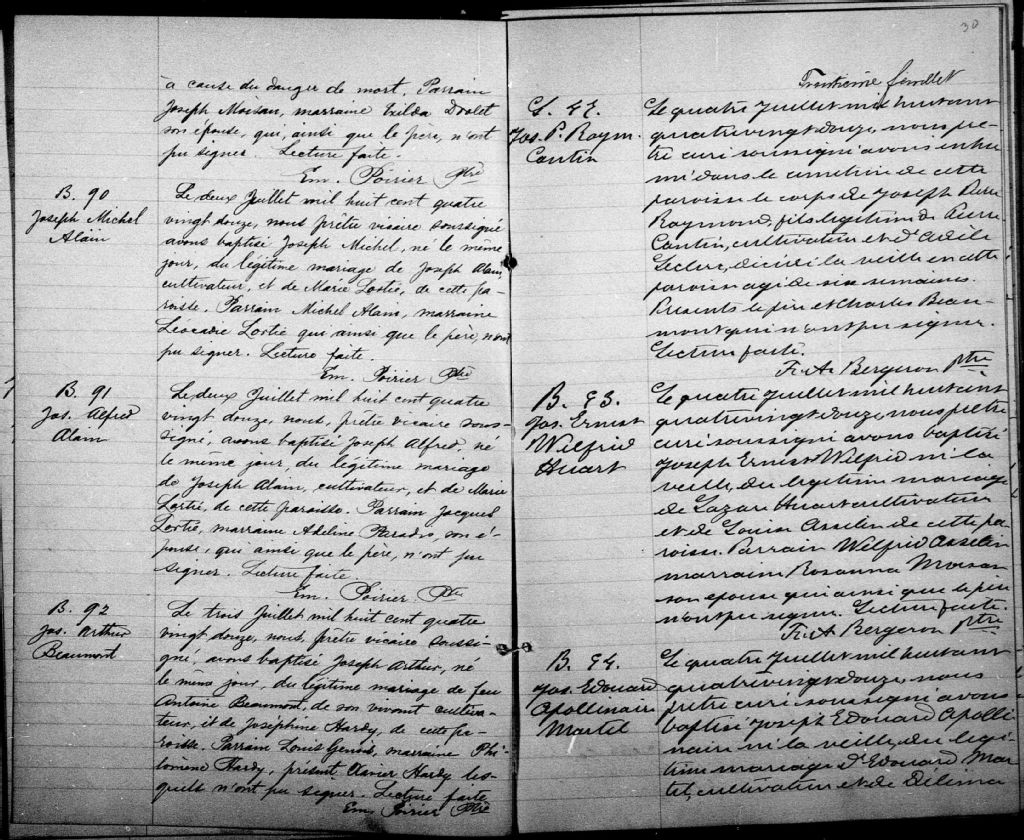 à cause du danger de mort. Parrain
Joseph Moisan, marraine Exilda Drolet
son épouse, qui, ainsi que le père, n'ont
pu signer. Lecture faite.
Em. Poirier Ptre
B. 90
Joseph Michel
Alain
Le deux Juillet mil huit cent quatre
vingt douze, nous, prêtre vicaire soussigné
avons baptisé Joseph Michel, né le même
jour, du légitime mariage de Joseph Alain,
cultivateur, et de Marie Lortie, de cette pa-
roisse. Parrain Michel Alain, marraine
Léocadie Lortié qui ainsi que le père, n'ont
pu signer. Lecture faite.
Em. Poirier Ptre
B. 91
Jos. Alfred
Alain
Le deux Juillet mil huit cent quatre
vingt douze, nous, prêtre vicaire sous-
signé, avons baptisé Joseph Alfred, né
le même jour, du légitime mariage
de Joseph Alain, cultivateur, et de Marie
Lortie, de cette paroisse. Parrain Jacques
Lortie, marraine Adeline Paradis, son é-
pouse, qui ainsi que le père, n'ont pu
signer. Lecture faite.
Em. Poirier Ptre
B. 92
Jos. Arthur
Beaumont
Le trois Juillet mil huit cent quatre
vingt douze, nous, prêtre vicaire soussi-
gné, avons baptisé Joseph Arthur, né
le même jour, du légitime mariage de feu
Antoine Beaumont, de son vivant cultiva-
teur, et de Joséphine Hardy, de cette pa-
roisse. Parrain Louis Genois, marraine Phi-
lomène Hardy, présent Olivier Hardy les-
quels n'ont pu signer. Lecture faite
Em. Poirier Ptre
30
Trentième feuillet
S. 42.
Jos. P. Raym.
Cantin
Le quatre Juillet mil huit cent
quatrevingt douze, nous prê-
tre curé soussigné avons inhu
mé dans le cimetière de cette
paroisse le corps de Joseph Pierre
Raymond, fils légitime de Pierre
Cantin, cultivateur et d'Adèle
Leclerc, décédé la veille en cette
paroisse agé de six semaines.
Présents le père et Charles Beau-
mont qui n'ont pu signer.
Lecture faite.
F.-A. Bergeron Ptre
B. 93.
Jos. Ernest
Wilfrid
Huart
Le quatre Juillet mil huit cent
quatrevingt douze, nous prêtre
curé soussigné avons baptisé
Joseph Ernest Wilfrid né la
veille, du légitime mariage
de Lazare Huart cultivateur
et de Louise Asselin de cette pa-
roisse. Parrain Wilfrid Asselin
marraine Rosanna Moisan
son épouse qui ainsi que le père
n'ont pu signer. Lecture faite.
F.-A Bergeron Ptre
B. 94.
Jos. Edouard
Apollinaire
Martel
Le quatre Juillet mil huit cent
quatrevingt douze, nous
prêtre curé soussigné avons
baptisé Joseph Edouard Apolli-
naire né la veille, du légi-
time mariage d'Edouard Mar
tel, cultivateur et de Délima